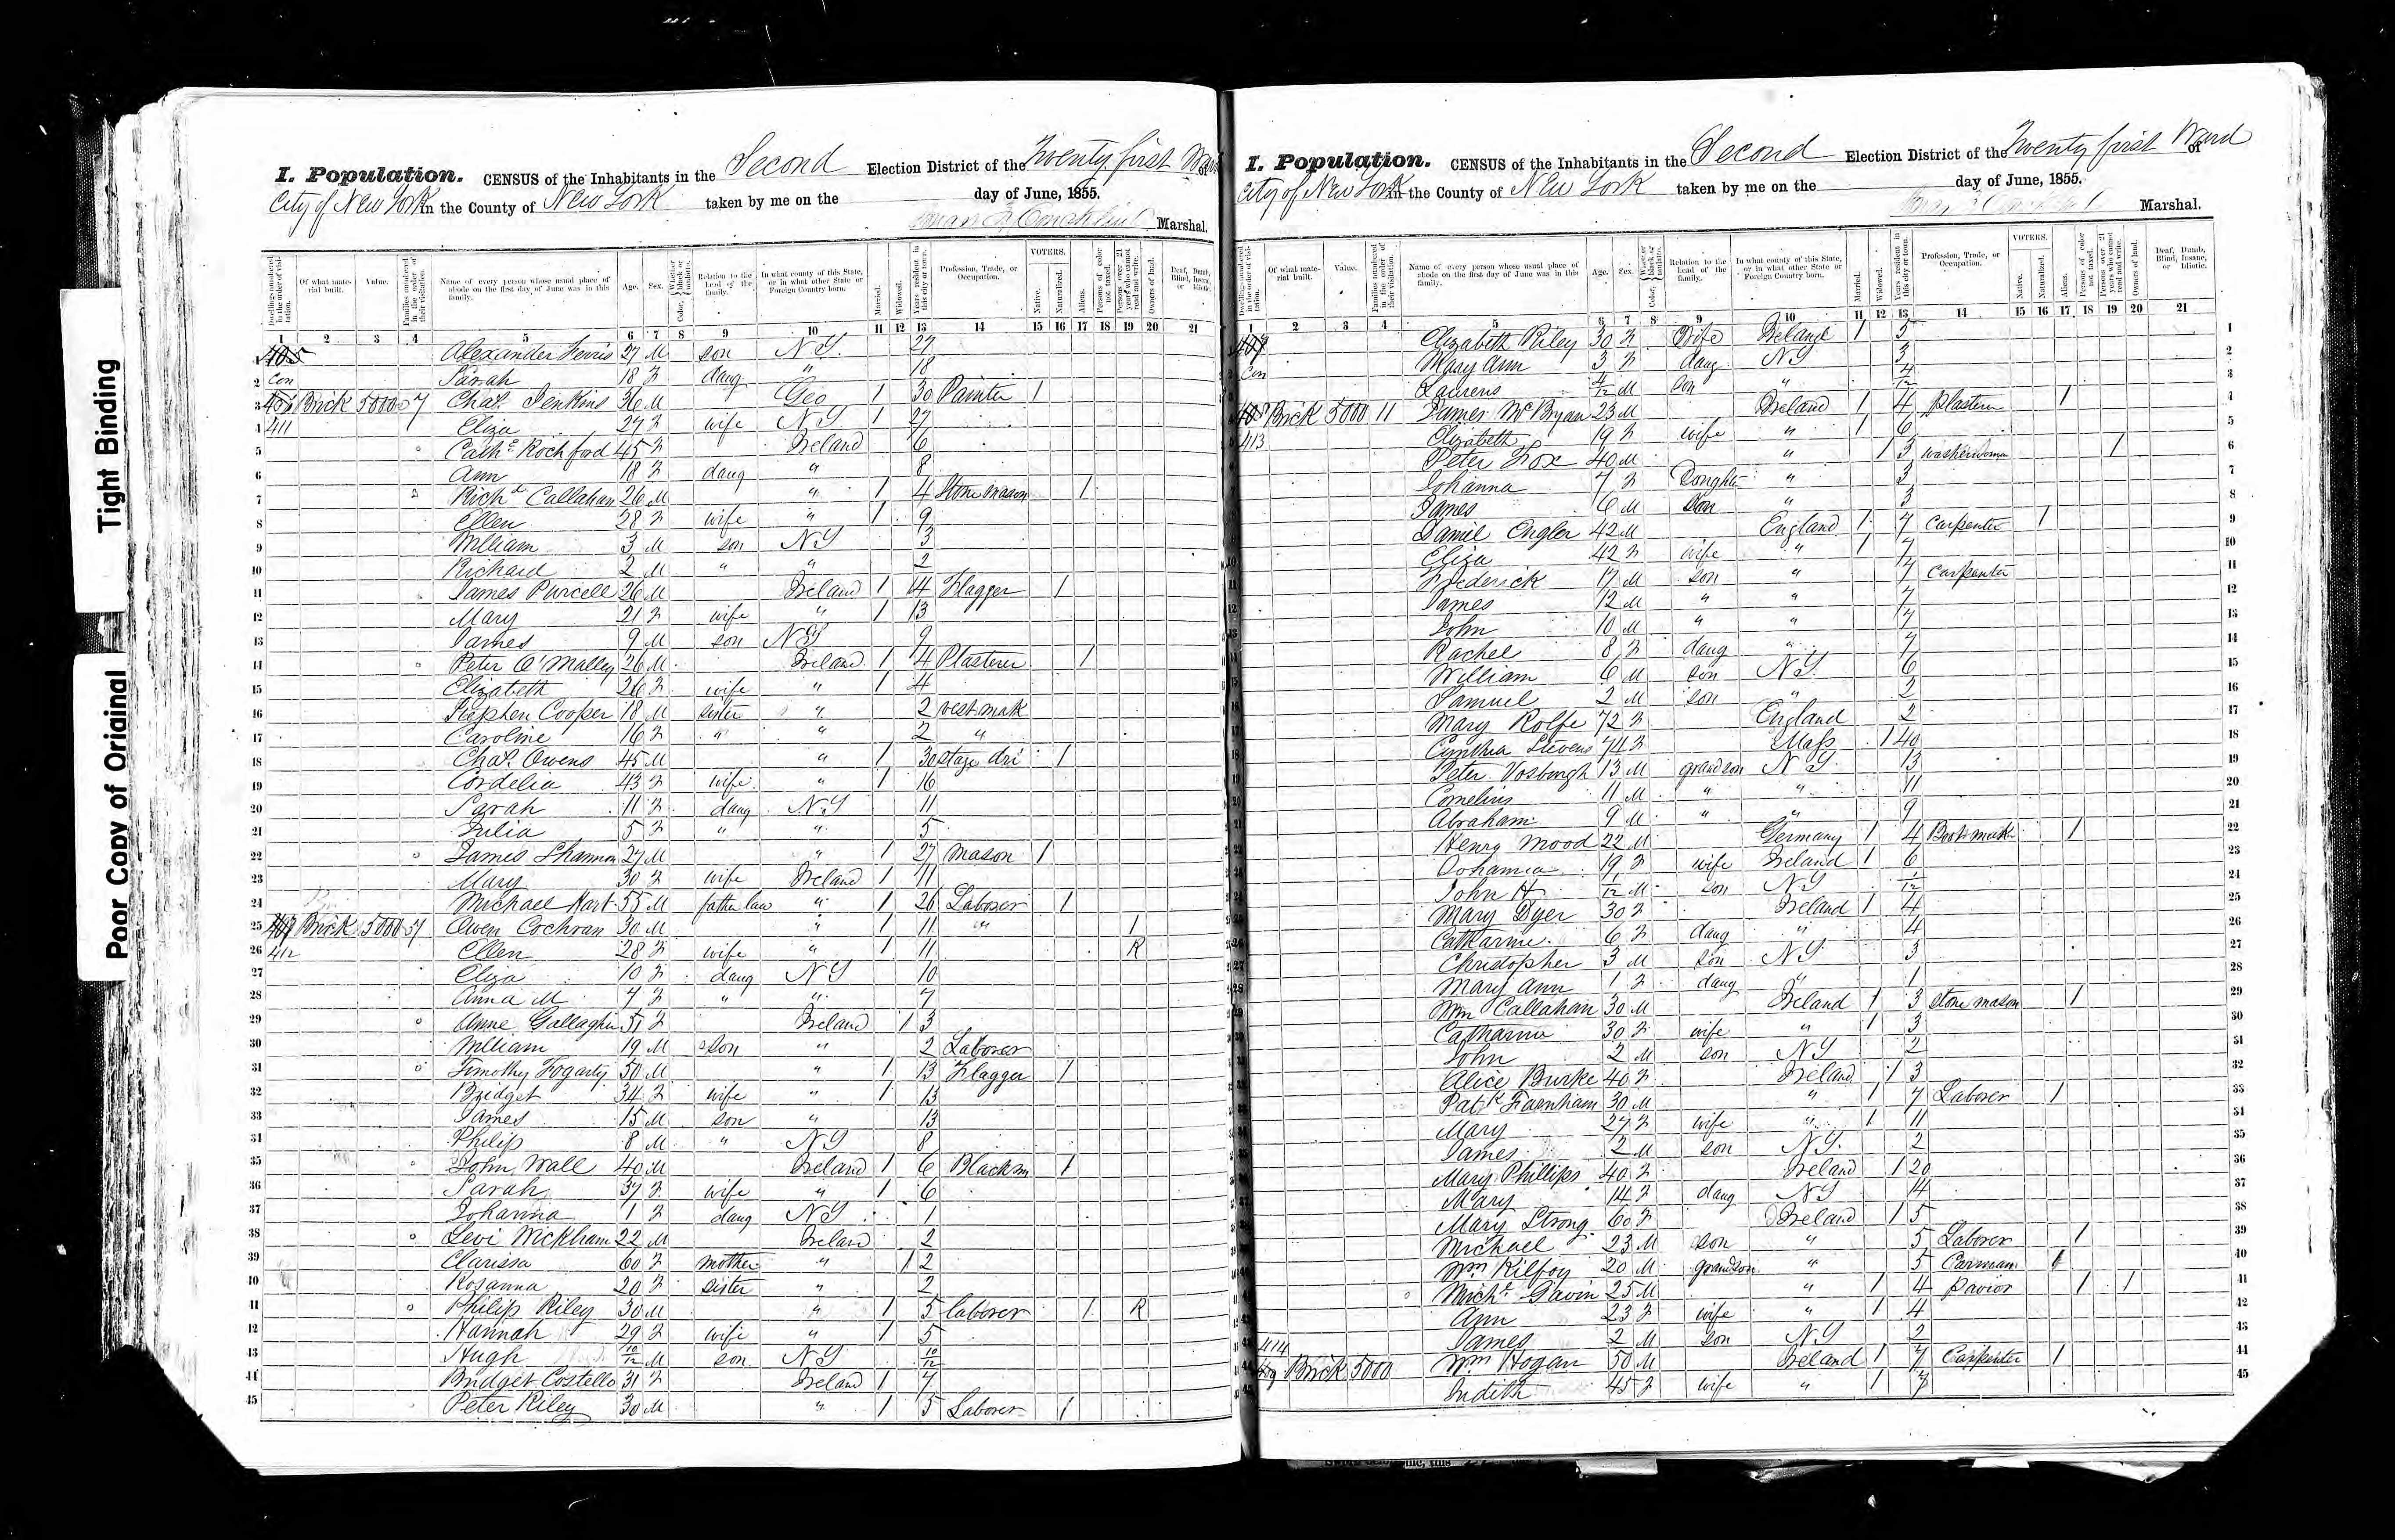 Tight Binding
Poor Copy of Original
I. Population. CENSUS of the Inhabitants in the Second Election District of the Twenty first Ward of
City of New York in the County of New York taken by me on the day of June, 1855.
Marshal.
Dwellings numbered in the order of visitation. Of what material built. Value. Families numbered in the order of their visitation. Name of every person whose usual place of abode on the first day of June was in this family. Age. Sex. Color, Whether black or mulatto. Relation to the head of the family. In what county of this State, or in what other State or Foreign Country born. Married. Widowed. Years resident in this city or town. Profession, Trade, or Occupation. VOTERS. Native. Naturalized. Aliens. Persons of color not taxed. Persons over 21 years who cannot read and write. Owners of land. Deaf, Dumb, Blind, Insane, or Idiotic.
1 2 3 4 5 6 7 8 9 10 11 12 13 14 15 16 17 18 19 20 21
1 405 Alexander Ferris 27 M son N Y. 27
2 Con Sarah 18 F daug " 18
3 Brick 5000 Chas. Jenkins 36 M Geo 1 30 Painter 1
4 411 Eliza 27 F wife N Y 1 27
5 Cathe Rochford 45 F Ireland 6
6 Ann 18 F daug " 8
7 Richd Callahan 26 M " 1 4 Stone mason 1
8 Ellen 28 F wife " 1 9
9 William 3 M son N Y 3
10 Richard 2 M " " 2
11 James Purcell 26 M Ireland 1 14 Flagger 1
12 Mary 21 F wife " 1 13
13 James 9 M son N Y 9
14 Peter O'Malley 26 M Ireland 1 4 Plasterer 1
15 Elizabeth 26 F wife " 1 4
16 Stephen Cooper 18 M sister " 2 vest mak
17 Caroline 16 F " " 2 "
18 Chas. Owens 45 M " 1 30 stage dri 1
19 Cordelia 43 F wife " 1 16
20 Sarah 11 F daug N Y 11
21 Julia 5 F " " 5
22 James Shannon 27 M " 1 27 mason 1
23 Mary 30 F wife Ireland 1 11
24 Michael Hart 55 M father law " 1 26 Laborer 1
25 Brick 5000 Owen Cochran 30 M " 1 11 " 1
26 412 Ellen 28 F wife " 1 11 R
27 Eliza 10 F daug N Y 10
28 Anna M 7 F " " 7
29 Anne Gallagher 51 F Ireland 1 3
30 William 19 M son " 2 Laborer
31 Timothy Fogarty 50 M " 1 13 Flagger 1
32 Bridget 34 F wife " 1 13
33 James 15 M son " 13
34 Philip 8 M " N Y 8
35 John Wall 40 M Ireland 1 6 Blacksm 1
36 Sarah 37 F wife " 1 6
37 Johanna 1 F daug N Y 1
38 Levi Wickham 22 M Ireland 2
39 Clarissa 60 F mother " 1 2
40 Rosanna 20 F sister " 2
41 Philip Riley 30 M " 1 5 laborer 1 R
42 Hannah 29 F wife " 1 5
43 Hugh 10/12 M son N Y 10/12
44 Bridget Costello 31 F Ireland 1 7
45 Peter Riley 30 M " 1 5 Laborer 1
I. Population. CENSUS of the Inhabitants in the Second Election District of the Twenty first Ward of
City of New York in the County of New York taken by me on the day of June, 1855.
Marshal.
Dwellings numbered in the order of visitation. Of what material built. Value. Families numbered in the order of their visitation. Name of every person whose usual place of abode on the first day of June was in this family. Age. Sex. Color, Whether black or mulatto. Relation to the head of the family. In what county of this State, or in what other State or Foreign Country born. Married. Widowed. Years resident in this city or town. Profession, Trade, or Occupation. VOTERS. Native. Naturalized. Aliens. Persons of color not taxed. Persons over 21 years who cannot read and write. Owners of land. Deaf, Dumb, Blind, Insane, or Idiotic.
1 2 3 4 5 6 7 8 9 10 11 12 13 14 15 16 17 18 19 20 21
Elizabeth Riley 30 F Wife Ireland 1 5 1
Con Mary Ann 3 F daug N Y 3 2
Laurens 4/12 M son " 4/12 3
Brick 5000 11 James McBryan 23 M Ireland 1 4 plasterer 1 4
413 Elizabeth 19 F wife " 1 6 5
Peter Fox 40 M " 1 3 washerwoman 1 6
Johanna 7 F Daughter " 3 7
James 6 M Son " 3 8
Daniel Engler 42 M England 1 7 Carpenter 1 9
Eliza 42 F wife " 1 7 10
Frederick 17 M son " 7 Carpenter 11
James 12 M " " 7 12
John 10 M " " 7 13
Rachel 8 F daug " 7 14
William 6 M son N Y 6 15
Samuel 2 M son " 2 16
Mary Rolfe 72 F England 2 17
Cynthia Stevens 74 F Mass 1 40 18
Peter Vosburgh 13 M grandson N Y 13 19
Cornelius 11 M " " 11 20
Abraham 9 M " " 9 21
Henry Mood 22 M Germany 1 4 Boot mak 1 22
19 F wife Ireland 1 6 23
John H 1/12 M son N Y 1/12 24
Mary Dyer 30 F Ireland 1 4 25
Catharine 6 F daug " 4 26
Christopher 3 M son N Y 3 27
Mary Ann 1 F daug " 1 28
Wm Callahan 30 M Ireland 1 3 stone mason 1 29
Catharine 30 F wife " 1 3 30
John 2 M son N Y 2 31
Alice Burke 40 F Ireland 1 3 32
Patk Farnham 30 M " 1 7 Laborer 1 33
Mary 27 F wife " 1 11 34
James 2 M son N Y. 2 35
Mary Phillips 40 F Ireland 1 20 36
Mary 14 F daug N Y 14 37
Mary Strong 60 F Ireland 1 5 38
Michael 23 M son " 5 Laborer 1 39
Wm Kilfoy 20 M grandson " 5 Carman 1 40
Michl Gavin 25 M " 1 4 pavior 1 1 41
Ann 23 F wife " 1 4 42
414 James 2 M son N Y 2 43
Brick 5000 Wm Hogan 50 M Ireland 1 7 Carpenter 1 44
Judith 45 F wife " 1 7 45